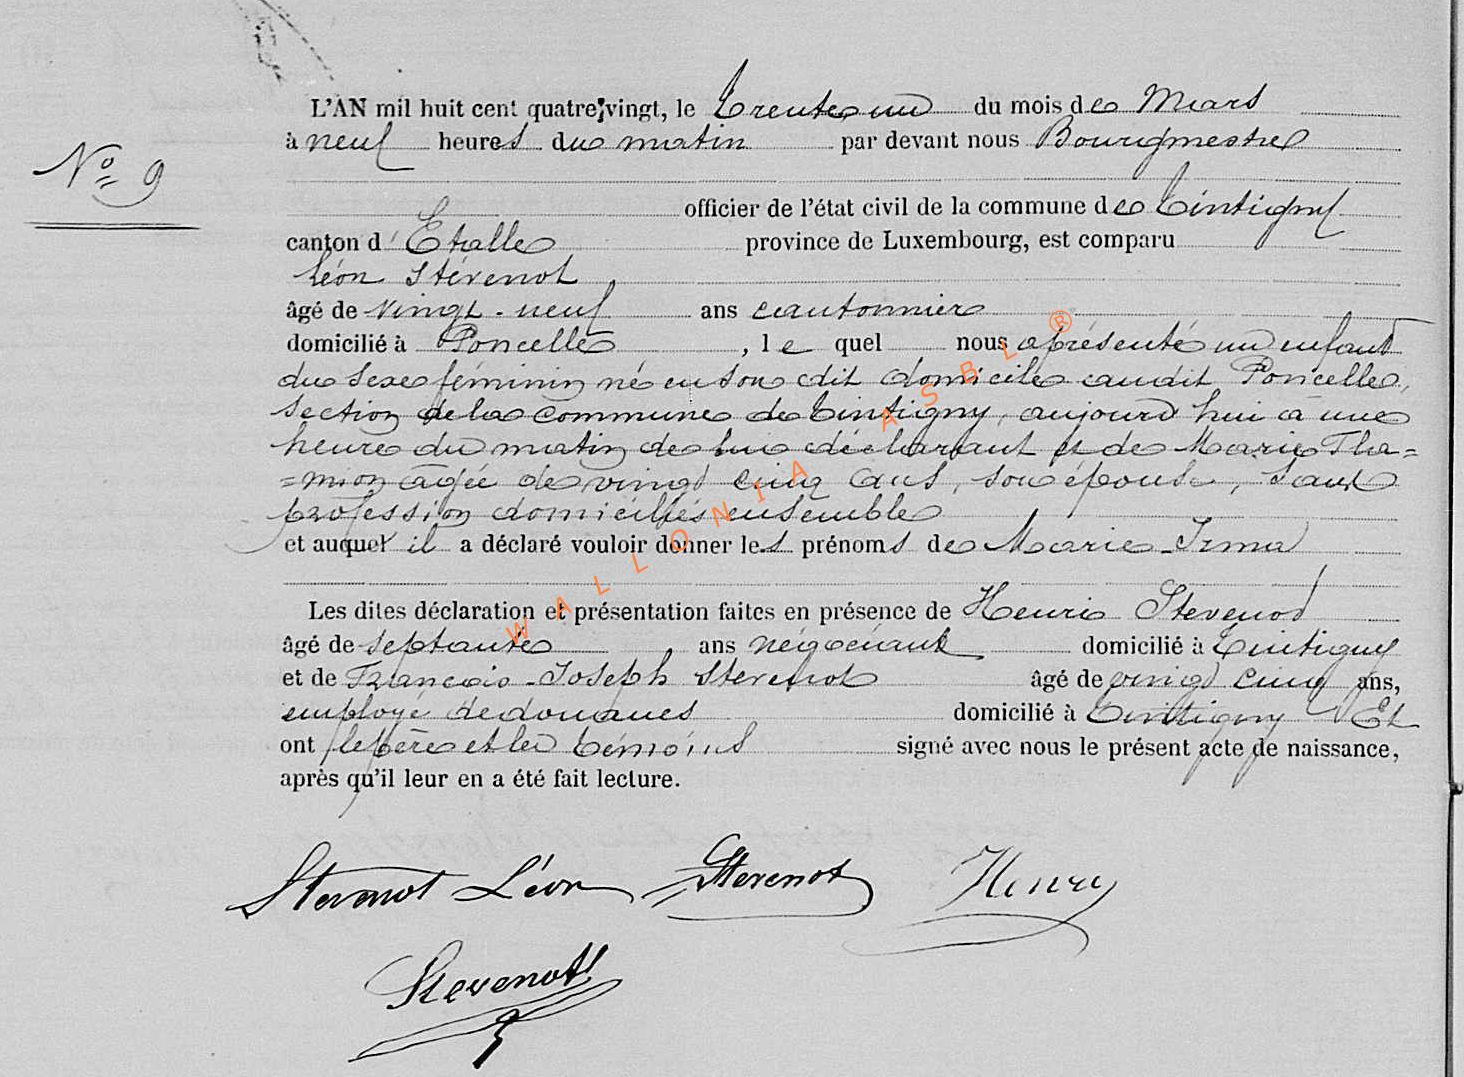 L'AN mil huit cent quatre-vingt, le trente un du mois de Mars
N° 9
à neuf heures du matin par devant nous Bourgmestre
officier de l'état civil de la commune de Tintigny
canton d'Etalle province de Luxembourg, est comparu
Léon Stévenot
âgé de vingt-neuf ans cantonnier
domicilié à Poncelle, le quel nous a présenté un enfant
du sexe féminin né en son dit domicile audit Poncelle,
section de la commune de Tintigny, aujourd'hui à une
heure du matin de lui déclarant et de Marie Tha=
=mion âgée de vingt cinq ans, son épouse, sans
profession domiciliés ensemble
et auquel il a déclaré vouloir donner les prénoms de Marie-Irma
Les dites déclaration et présentation faites en présence de Henri Stevenot
âgé de septante ans négociant domicilié à Tintigny
et de François-Joseph Stevenot âgé de vingt cinq ans,
employé de douanes domicilié à Tintigny Et
ont le père et les témoins signé avec nous le présent acte de naissance,
après qu'il leur en a été fait lecture.
Stevenot Léon Stevenot Henry
Stevenot
WALLONIA ASBL ®